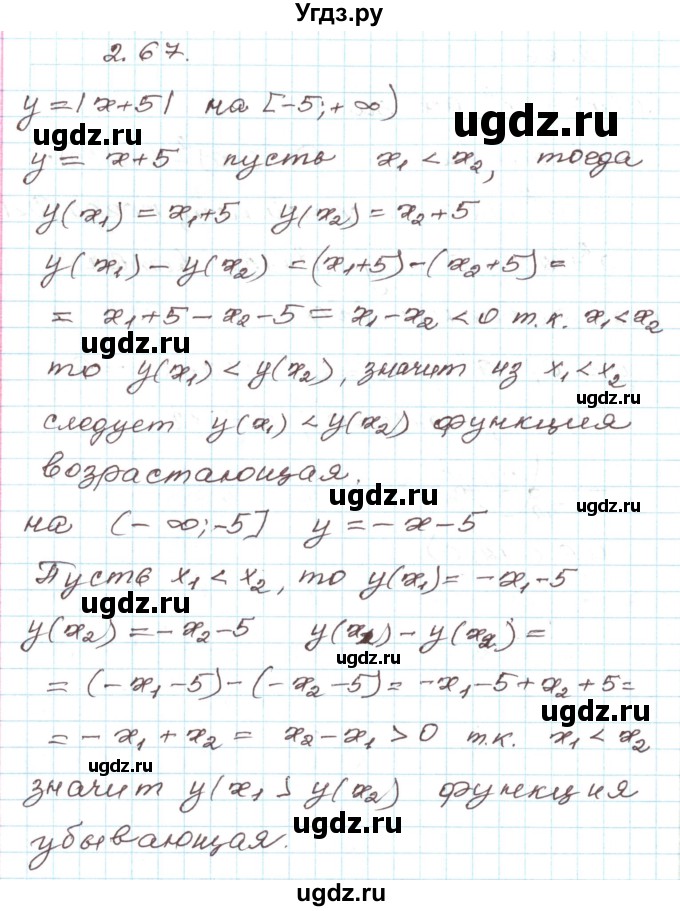 Угдз.ру
2.67.
y = |x+5| на [-5; +∞)
ugdz.ru
ugdz.ru
y = x+5 пусть x₁ < x₂, тогда
y(x₁) = x₁+5 y(x₂) = x₂+5
ugdz.ru
y(x₁) - y(x₂) = (x₁+5)-(x₂+5) =
= x₁+5-x₂-5 = x₁-x₂ < 0 т.к. x₁<x₂
ugdz.ru
то y(x₁) < y(x₂), значит из x₁<x₂
ugdz.ru
следует y(x₁) < y(x₂) функция
возрастающая.
ugdz.ru
ugdz.ru
на (-∞; -5] y = -x-5
Пусть x₁ < x₂, то y(x₁) = -x₁-5
ugdz.ru
y(x₂) = -x₂-5 y(x₁) - y(x₂) =
ugdz.ru
= (-x₁-5)-(-x₂-5) = -x₁-5+x₂+5 =
ugdz.ru
= -x₁+x₂ = x₂-x₁ > 0 т.к. x₁ < x₂
ugdz.ru
значит y(x₁ > y(x₂) функция
ugdz.ru
убывающая.
ugdz.ru